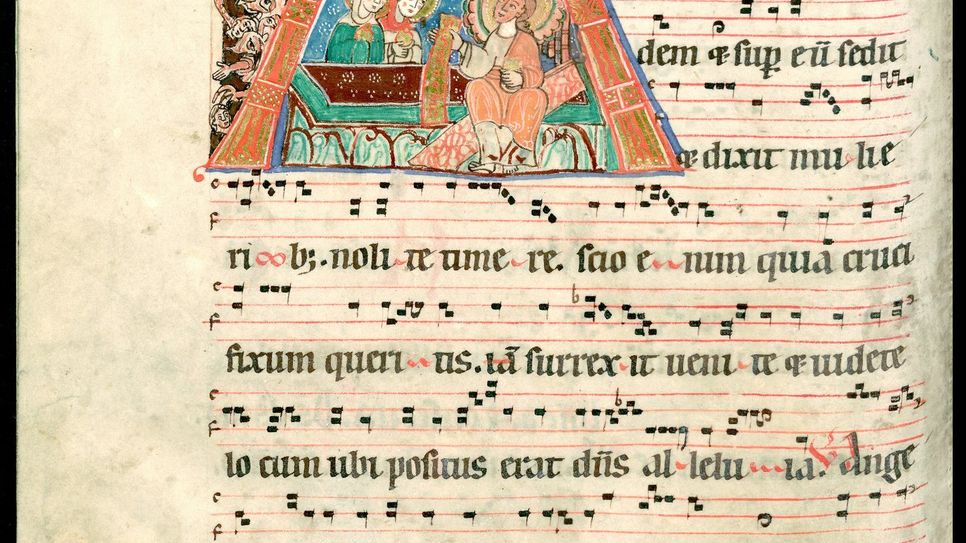 dem ⁊ sup eū sedit
⁊ dixit mu lie
ri bꝫ . noli te time re. scio e nim quia cruci
fixum queri tis. iā surrex it ueni te ⁊ uidete
lo cum ubi positus erat dn̄s al lelu ia. Ange